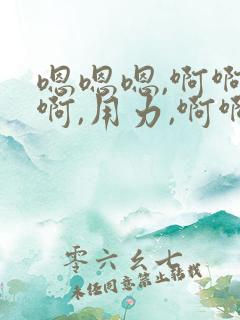 嗯嗯嗯,啊啊
啊,用力,啊啊
零六幺七
未经同意禁止转载